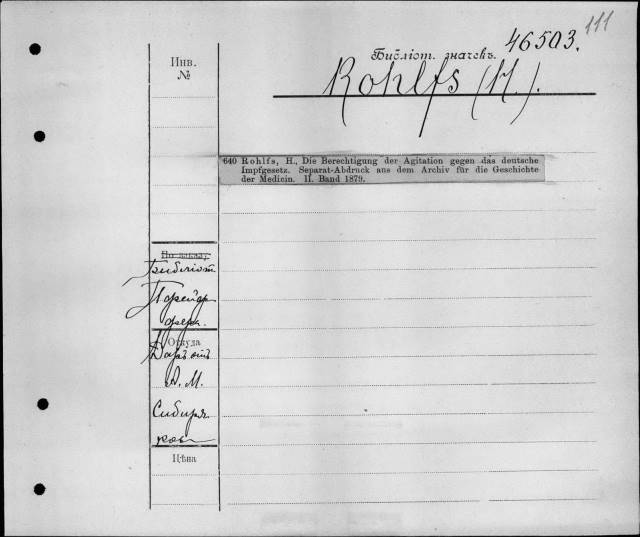 111
46503.
Библіот. значекъ.
Rohlfs (H.).
Инв.
№
640 Rohlfs, H., Die Berechtigung der Agitation gegen das deutsche
Impfgesetz. Separat-Abdruck aus dem Archiv für die Geschichte
der Medicin. II. Band 1879.
По заказу.
Библіот
Откуда
Даръ отъ
А. М.
Сибиря
кова
Цѣна